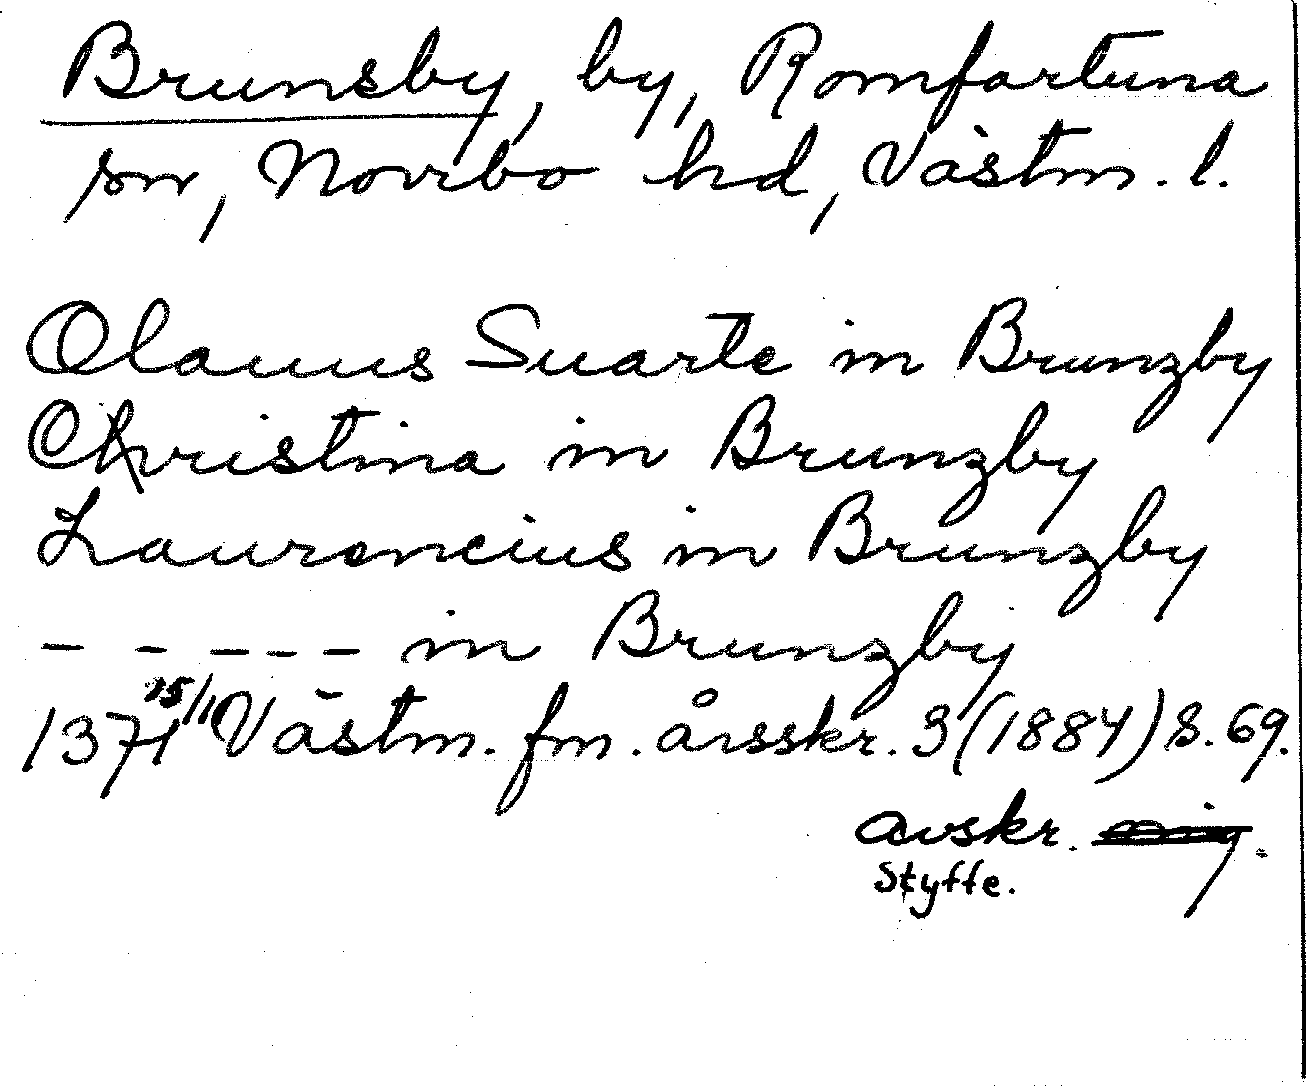 Brunsby, by, Romfartuna
sn, Norrbo hd, Västm. l.
Olauus Suarte in Brunzby
Christina in Brunzby
Laurencius in Brunzby
- - - - - in Brunzby
1371 15/11 Västm. fm. årsskr. 3 (1884) S. 69.
avskr.
Styffe.